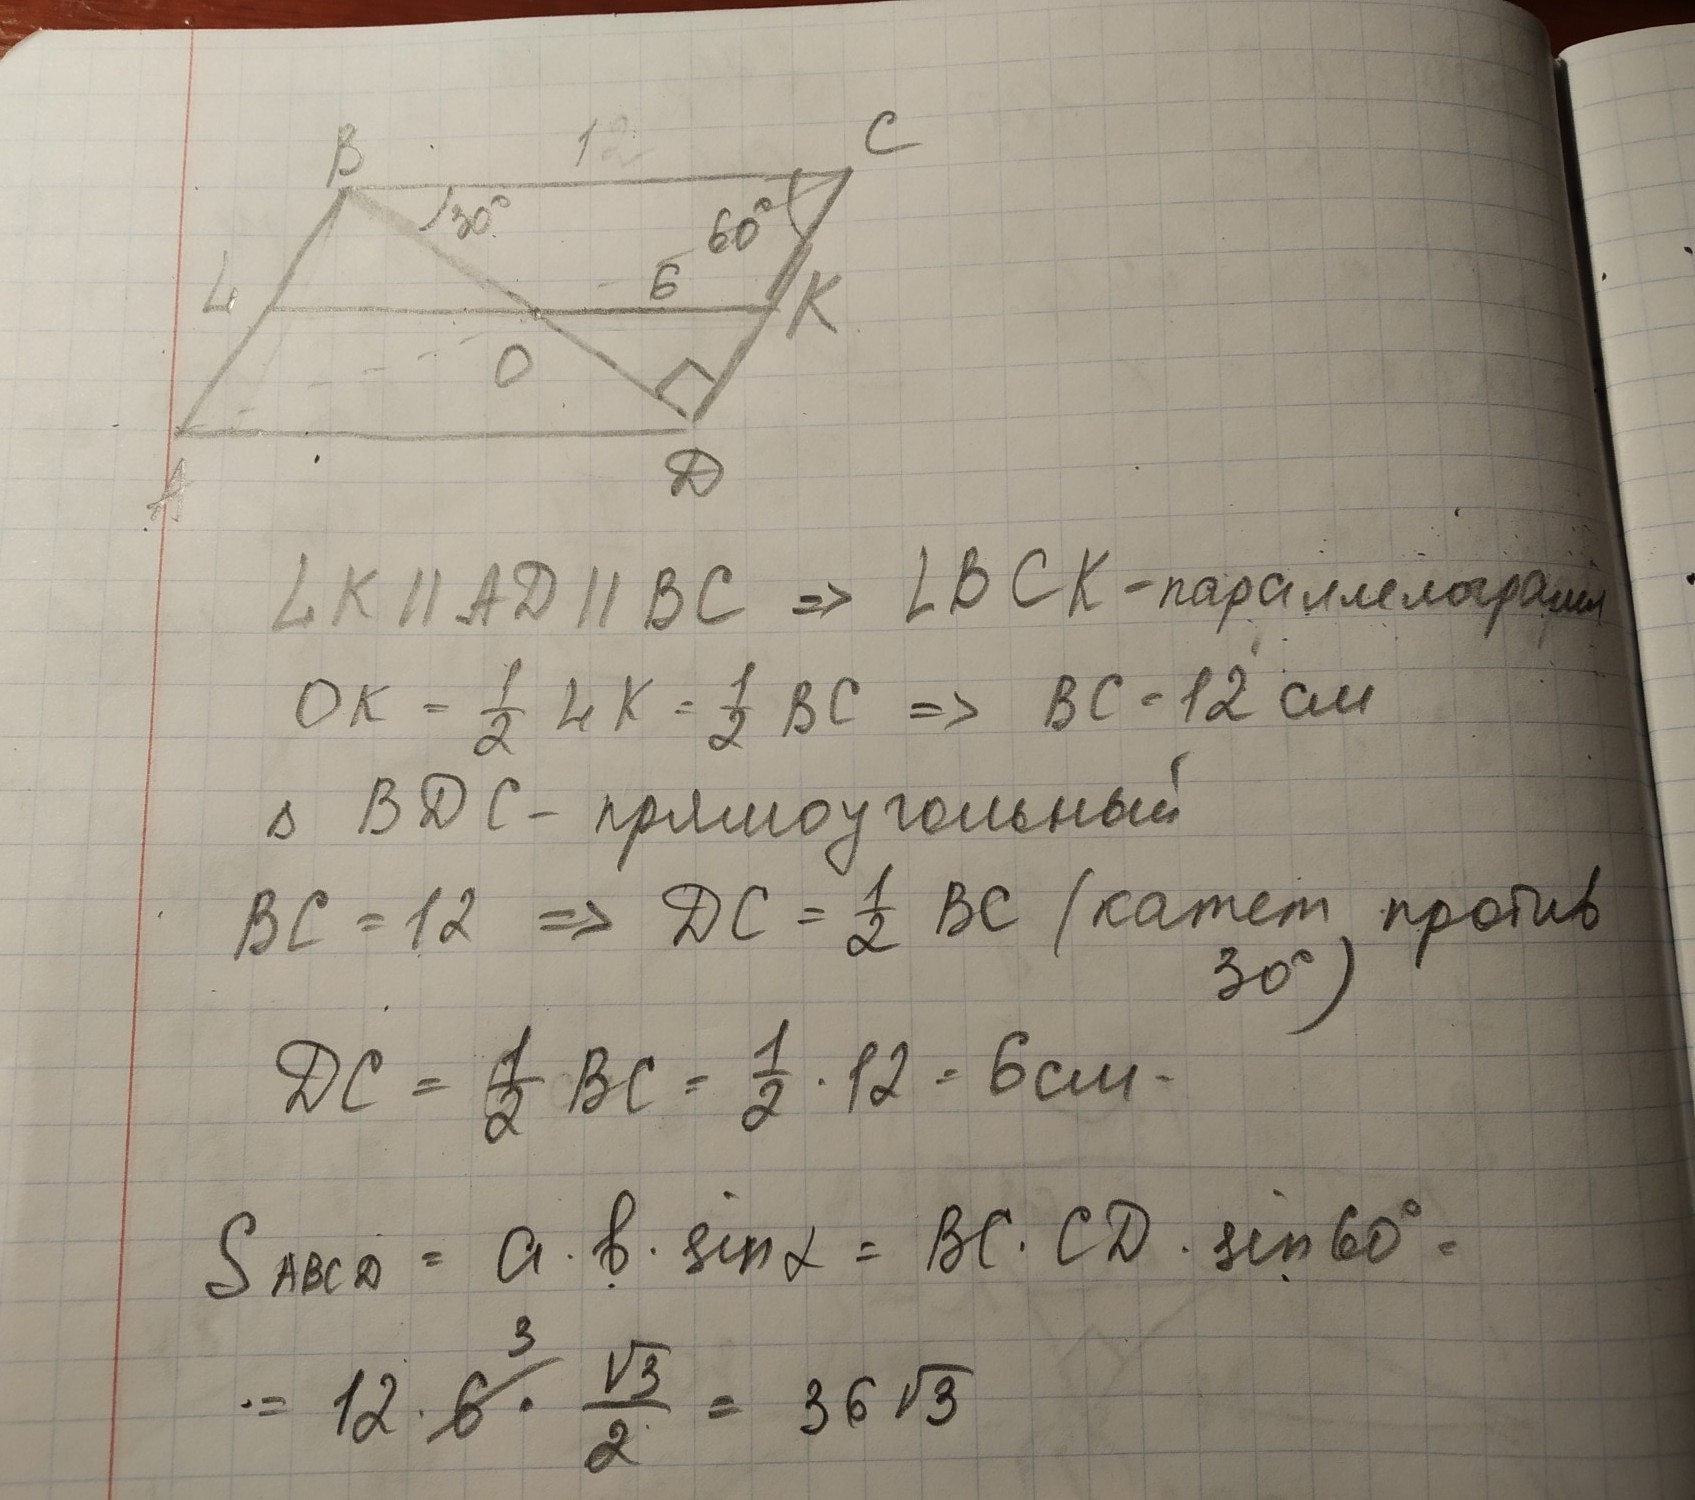 B 12 C
30° 60°
L 6 K
O
A D
LK || AD || BC => LBCK - параллелограмм
OK = 1/2 LK = 1/2 BC => BC = 12 см
△ BDC - прямоугольный
BC = 12 => DC = 1/2 BC (катет против
30°)
DC = 1/2 BC = 1/2 · 12 = 6 см.
S ABCD = a · b · sin α = BC · CD · sin 60° =
= 12 · 6 3 · √3/2 = 36 √3